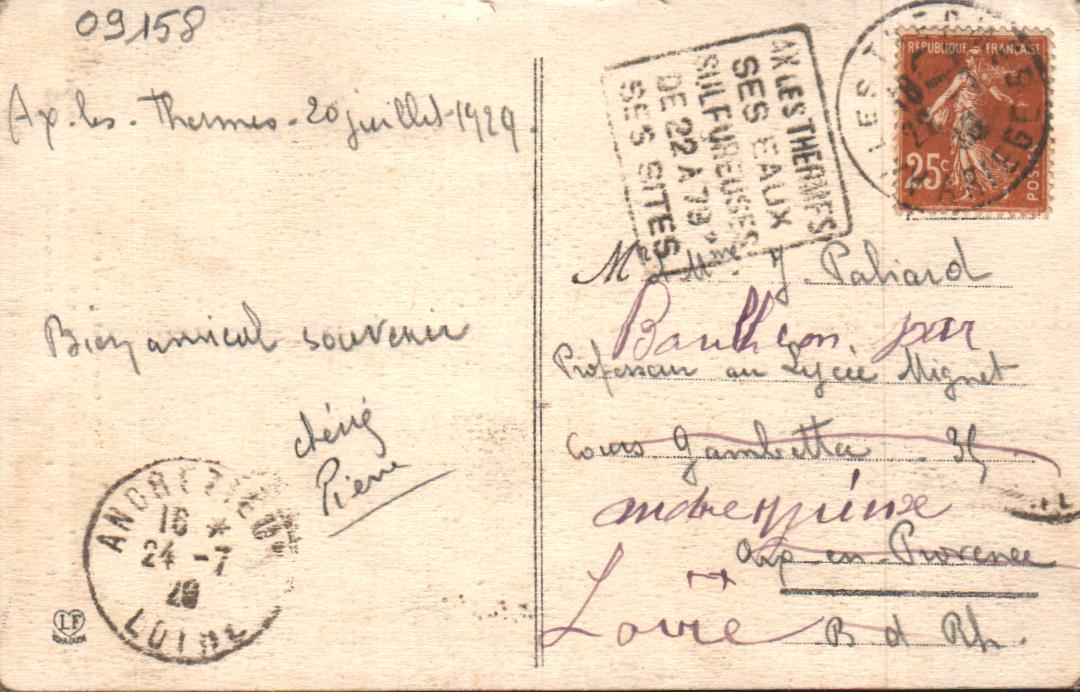 09158
Ax-les-Thermes-20 juillet-1929.
Bien amical souvenir
Pierre
AX LES THERMES
SES EAUX
SULFUREUSES
DE 22 A 78°
SES SITES
LES THER
ARIEGE
18
REPUBLIQUE FRANÇAISE
25c
POSTES
Mr et Mme J. Paliard
Boutheon par
Professeur au Lycée Mignet
Cours Gambetta 35
andrezieux
Aix-en-Provence
Loire
B d Rh.
ANDREZIEUX
16 *
24 -7
29
LOIRE
LF